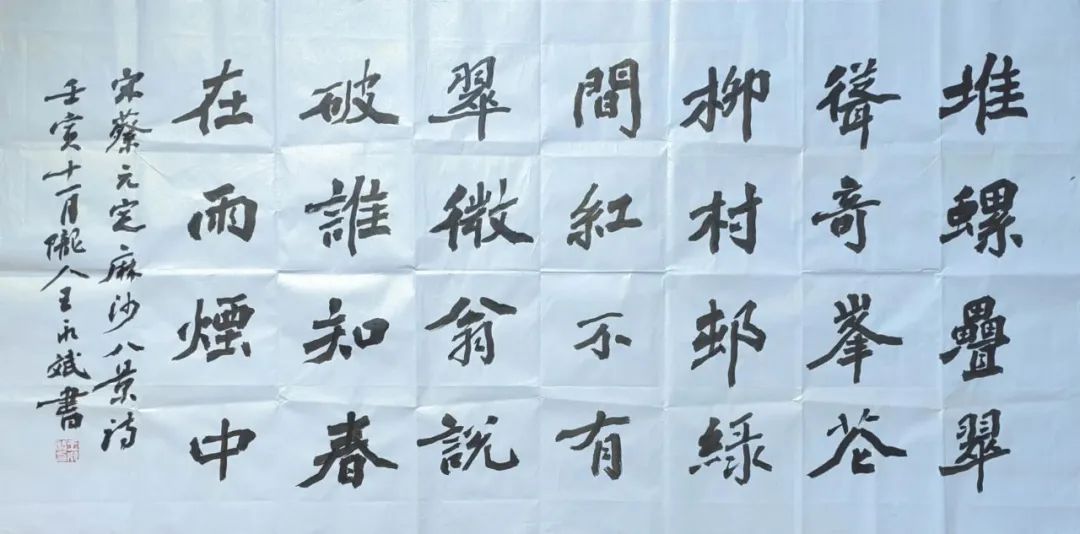 堆螺疊翠
聳奇峯花
柳村邨綠
間紅不有
翠微翁說
破誰知春
在雨煙中
宋蔡元定麻沙八景詩
壬寅十一月隴人王永斌書